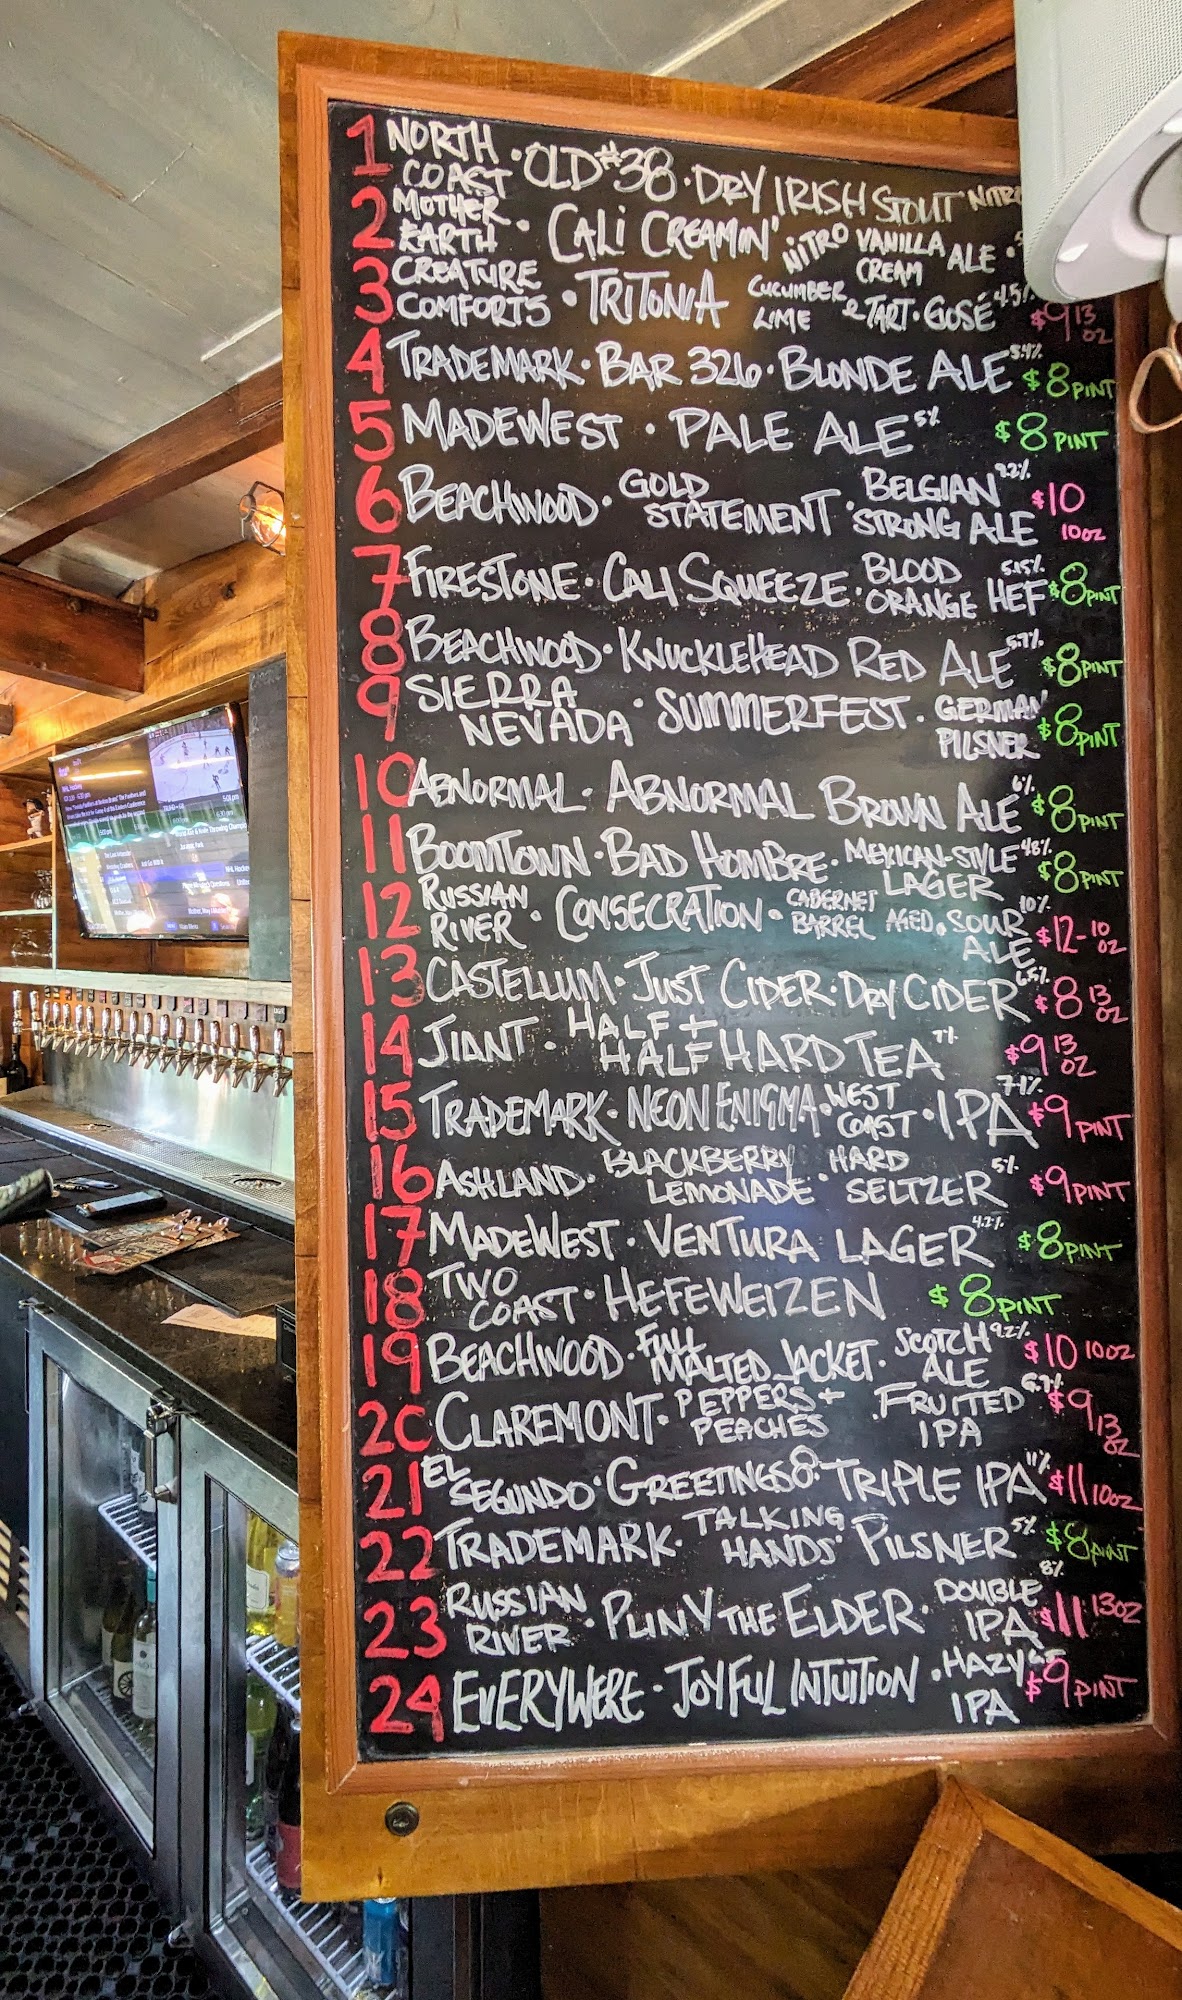 1 NORTH COAST · OLD #38 · DRY IRISH STOUT NITRO
2 MOTHER EARTH · CALI CREAMIN' NITRO VANILLA CREAM ALE ·
3 CREATURE COMFORTS · TRITONIA CUCUMBER LIME & TART · GOSÉ 4.5% $9 13 OZ
4 TRADEMARK · BAR 326 · BLONDE ALE 5.4% $8 PINT
5 MADEWEST · PALE ALE 5% $8 PINT
6 BEACHWOOD · GOLD STATEMENT · BELGIAN STRONG ALE 9.2% $10 10OZ
7 FIRESTONE · CALI SQUEEZE · BLOOD ORANGE HEF 5.15% $8 PINT
8 BEACHWOOD · KNUCKLEHEAD RED ALE 5.7% $8 PINT
9 SIERRA NEVADA · SUMMERFEST · GERMAN PILSNER $8 PINT
10 ABNORMAL · ABNORMAL BROWN ALE 6% $8 PINT
11 BOOMTOWN · BAD HOMBRE · MEXICAN-STYLE LAGER 4.8% $8 PINT
12 RUSSIAN RIVER · CONSECRATION · CABERNET BARREL AGED · SOUR ALE 10% $12-10 OZ
13 CASTELLUM · JUST CIDER · DRY CIDER 6.5% $8 13 OZ
14 JIANT · HALF + HALF HARD TEA 7% $9 13 OZ
15 TRADEMARK · NEON ENIGMA · WEST COAST · IPA 7.1% $9 PINT
16 ASHLAND · BLACKBERRY LEMONADE · HARD SELTZER 5% $9 PINT
17 MADEWEST · VENTURA LAGER 4.2% $8 PINT
18 TWO COAST · HEFEWEIZEN $8 PINT
19 BEACHWOOD · FULL MALTED JACKET · SCOTCH ALE 9.2% $10 10OZ
20 CLAREMONT · PEPPERS + PEACHES · FRUITED IPA $9 13 OZ
21 EL SEGUNDO · GREETINGS 8 · TRIPLE IPA 11% $11 10OZ
22 TRADEMARK · TALKING HANDS · PILSNER 5% $8 PINT
23 RUSSIAN RIVER · PLINY THE ELDER · DOUBLE IPA 8% $11 13OZ
24 EVERYWERE · JOYFUL INTUITION · HAZY IPA $9 PINT